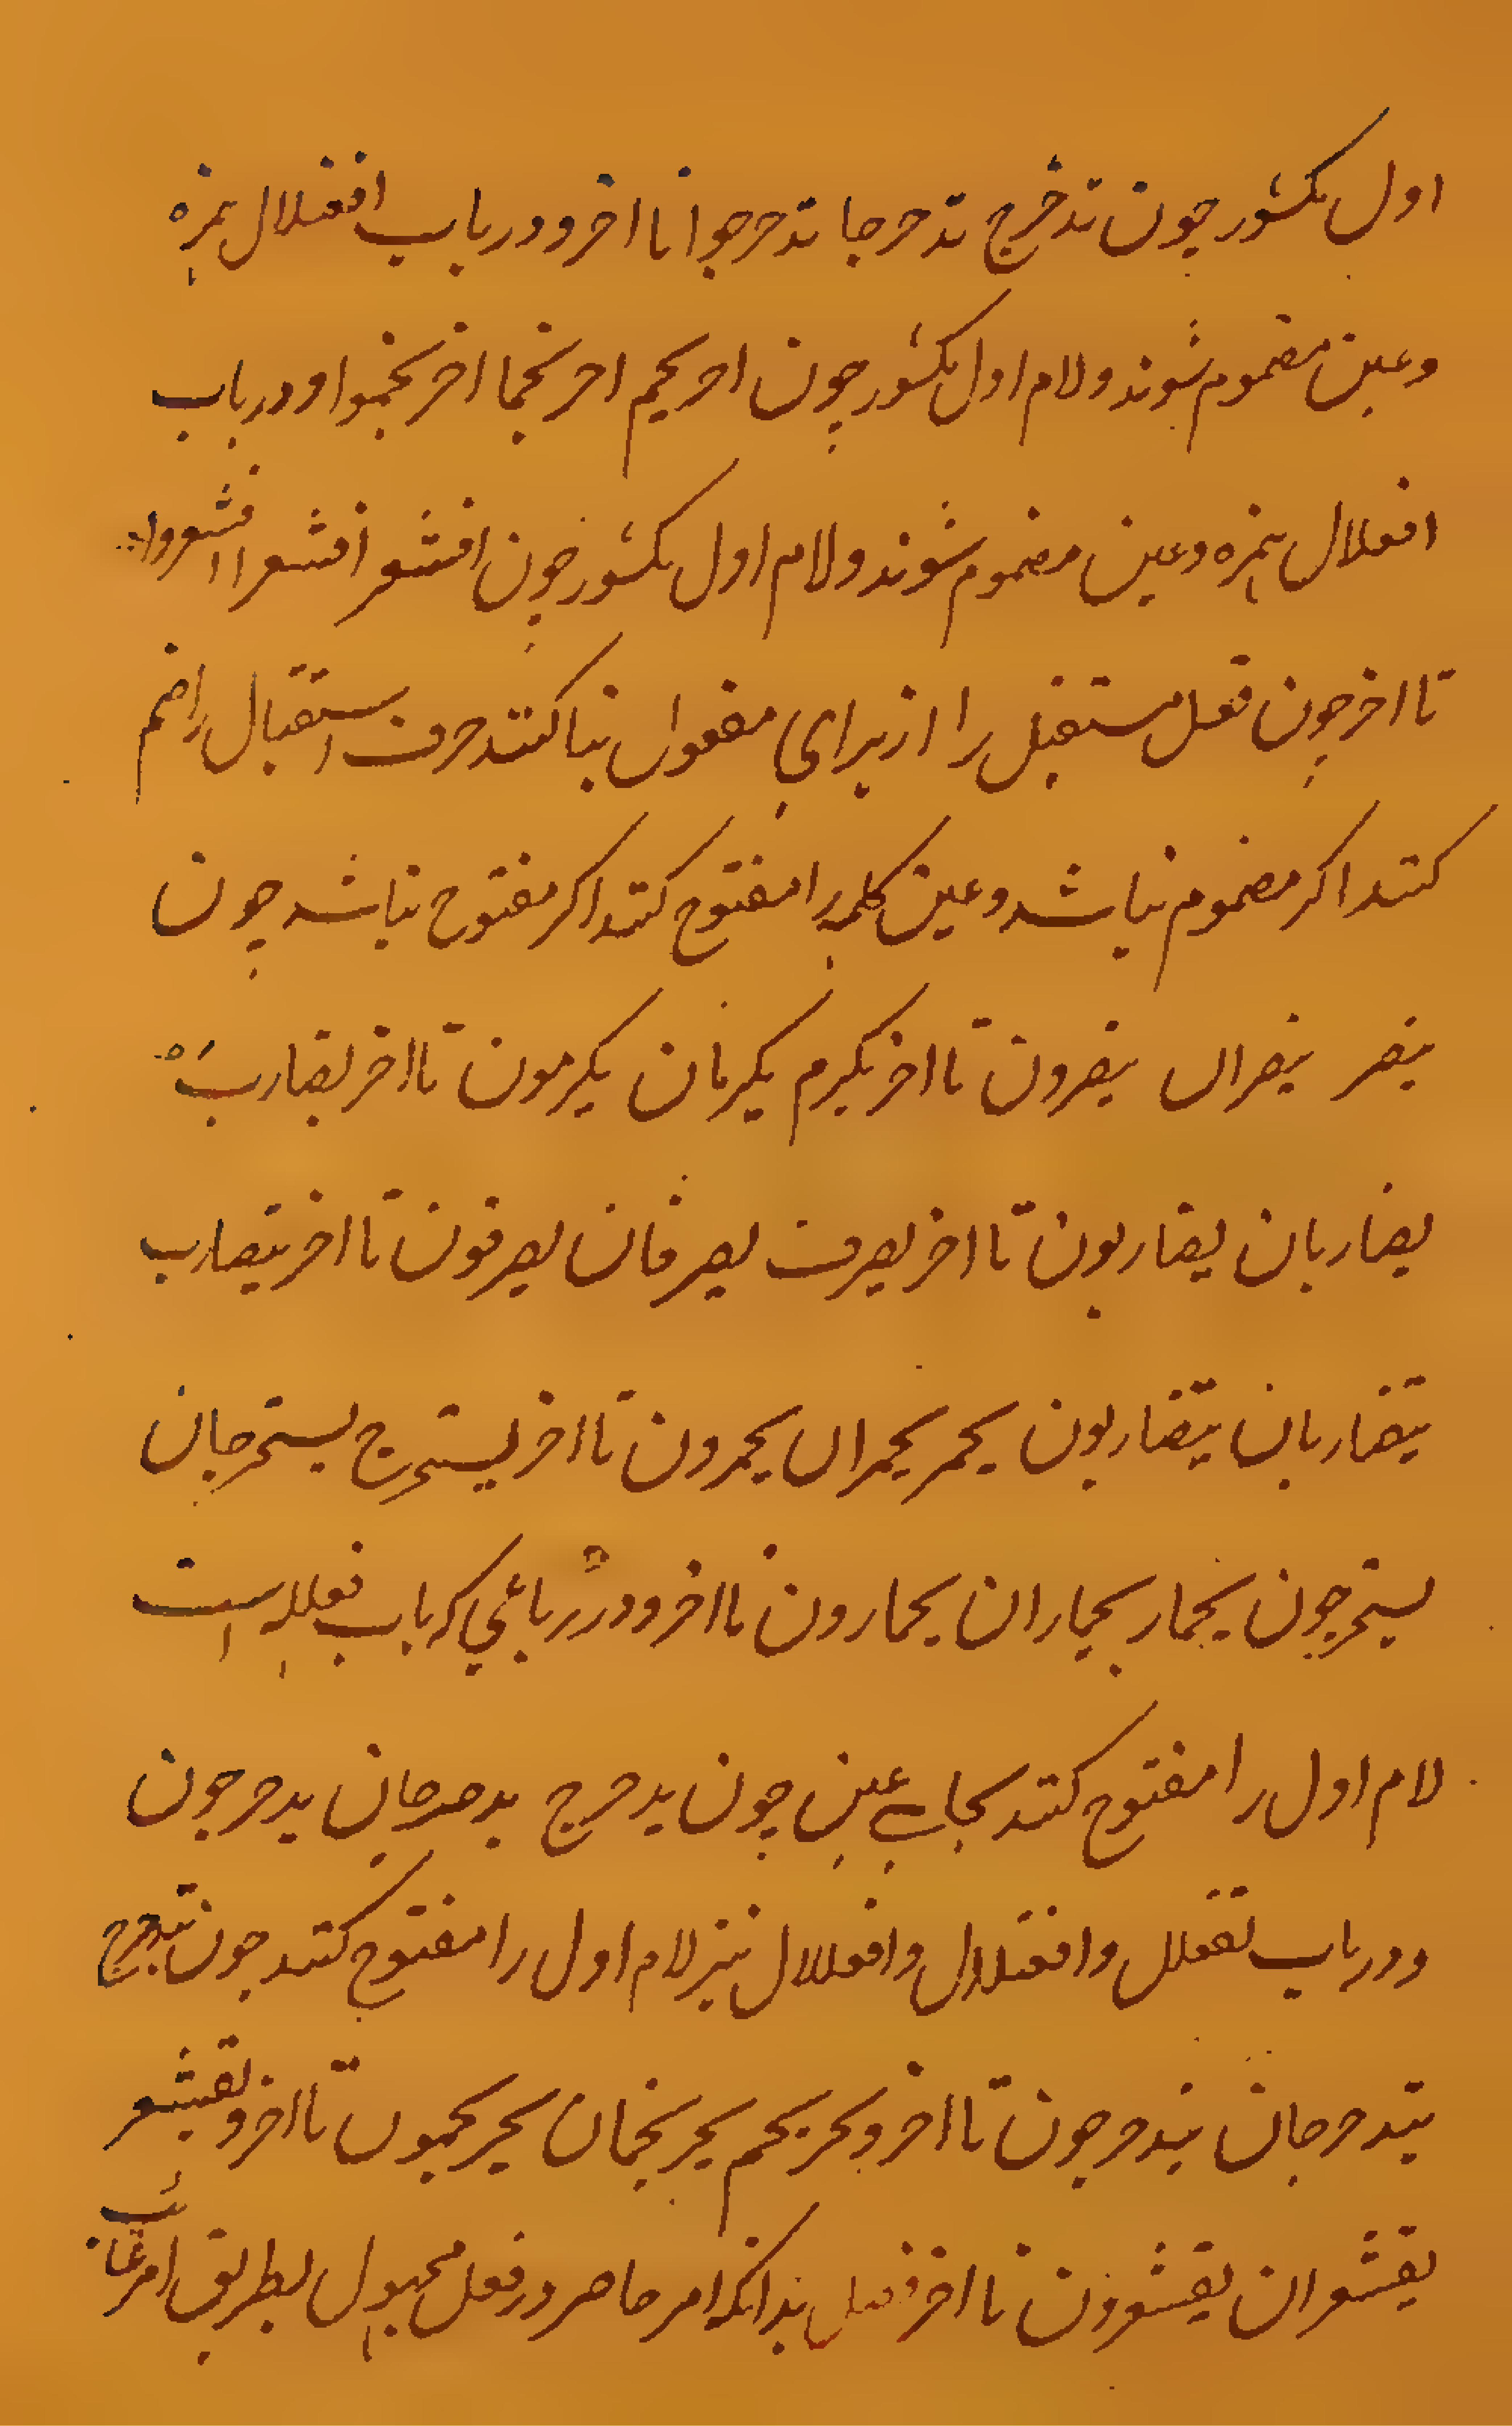 اول مکسور چون تدحرج تدحرجا تدحرجوا تا اخر و در باب افعنلال همزه
وعین مضموم شوند و لام اول مکسور چون احرنجم احرنجما احرنجموا و در باب
افعلال همزه وعین مضموم شوند و لام اول مکسور چون اقشعر اقشعرا اقشعروا
تا اخر چون فعل مستقبل را از برای مفعول بنا کنند حرف استقبال را ضم
کنند اکر مضموم نباشد و عین کلمه را مفتوح کنند اکر مفتوح نباشد چون
ینصر ینصران ینصرون تا اخر یکرم یکرمان یکرمون تا اخر یضارب
یضاربان یضاربون تا اخر یصرف یصرفان یصرفون تا اخر یتضارب
یتضاربان یتضاربون یحمر یحمران یحمرون تا اخر یستخرج یستخرجان
یستخرجون یحمار یحماران یحمارون تا اخر و در رباعی که باب فعلله است
لام اول را مفتوح کنند بجای عین چون یدحرج یدحرجان یدحرجون
و در باب تفعلل و افعنلال و افعلال نیز لام اول را مفتوح کنند چون یتدحرج
یتدحرجان یتدحرجون تا اخر و یحرنجم یحرنجمان یحرنجمون تا اخر و یقشعر
یقشعران یقشعرون تا اخر فصل بدانکه امر حاضر در فعل مجهول بطریق امر غائب